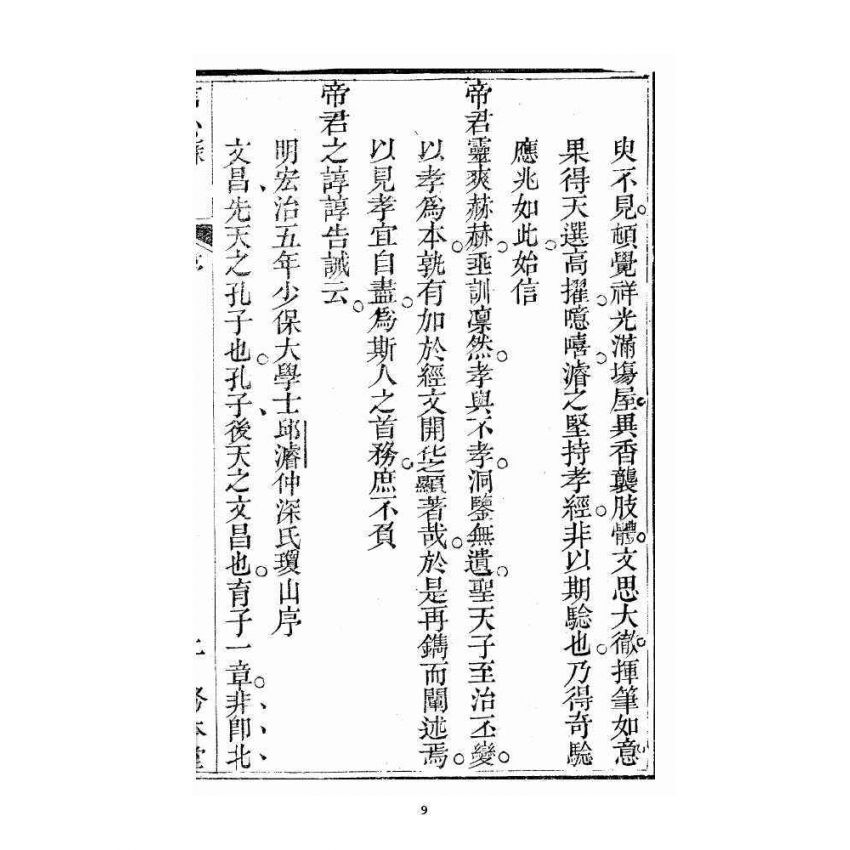 臾不見。頓覺祥光滿塲屋。異香襲肢體。文思大徹。揮筆如意。
果得天選高擢。噫嘻。濬之堅持孝經。非以期驗也。乃得奇驗
應兆如此。始信
帝君靈爽赫赫。垂訓凜然。孝與不孝。洞鑒無遺。聖天子至治丕變。
以孝爲本。孰有加於經文開化之顯著哉。於是再鐫而闡述焉。
以見孝宜自盡。爲斯人之首務。庶不負
帝君之諄諄告誡云。
明宏治五年少保大學士邱濬仲深氏瓊山序
文昌、先天之孔子也。孔子、後天之文昌也。育子一章。非卽北
9